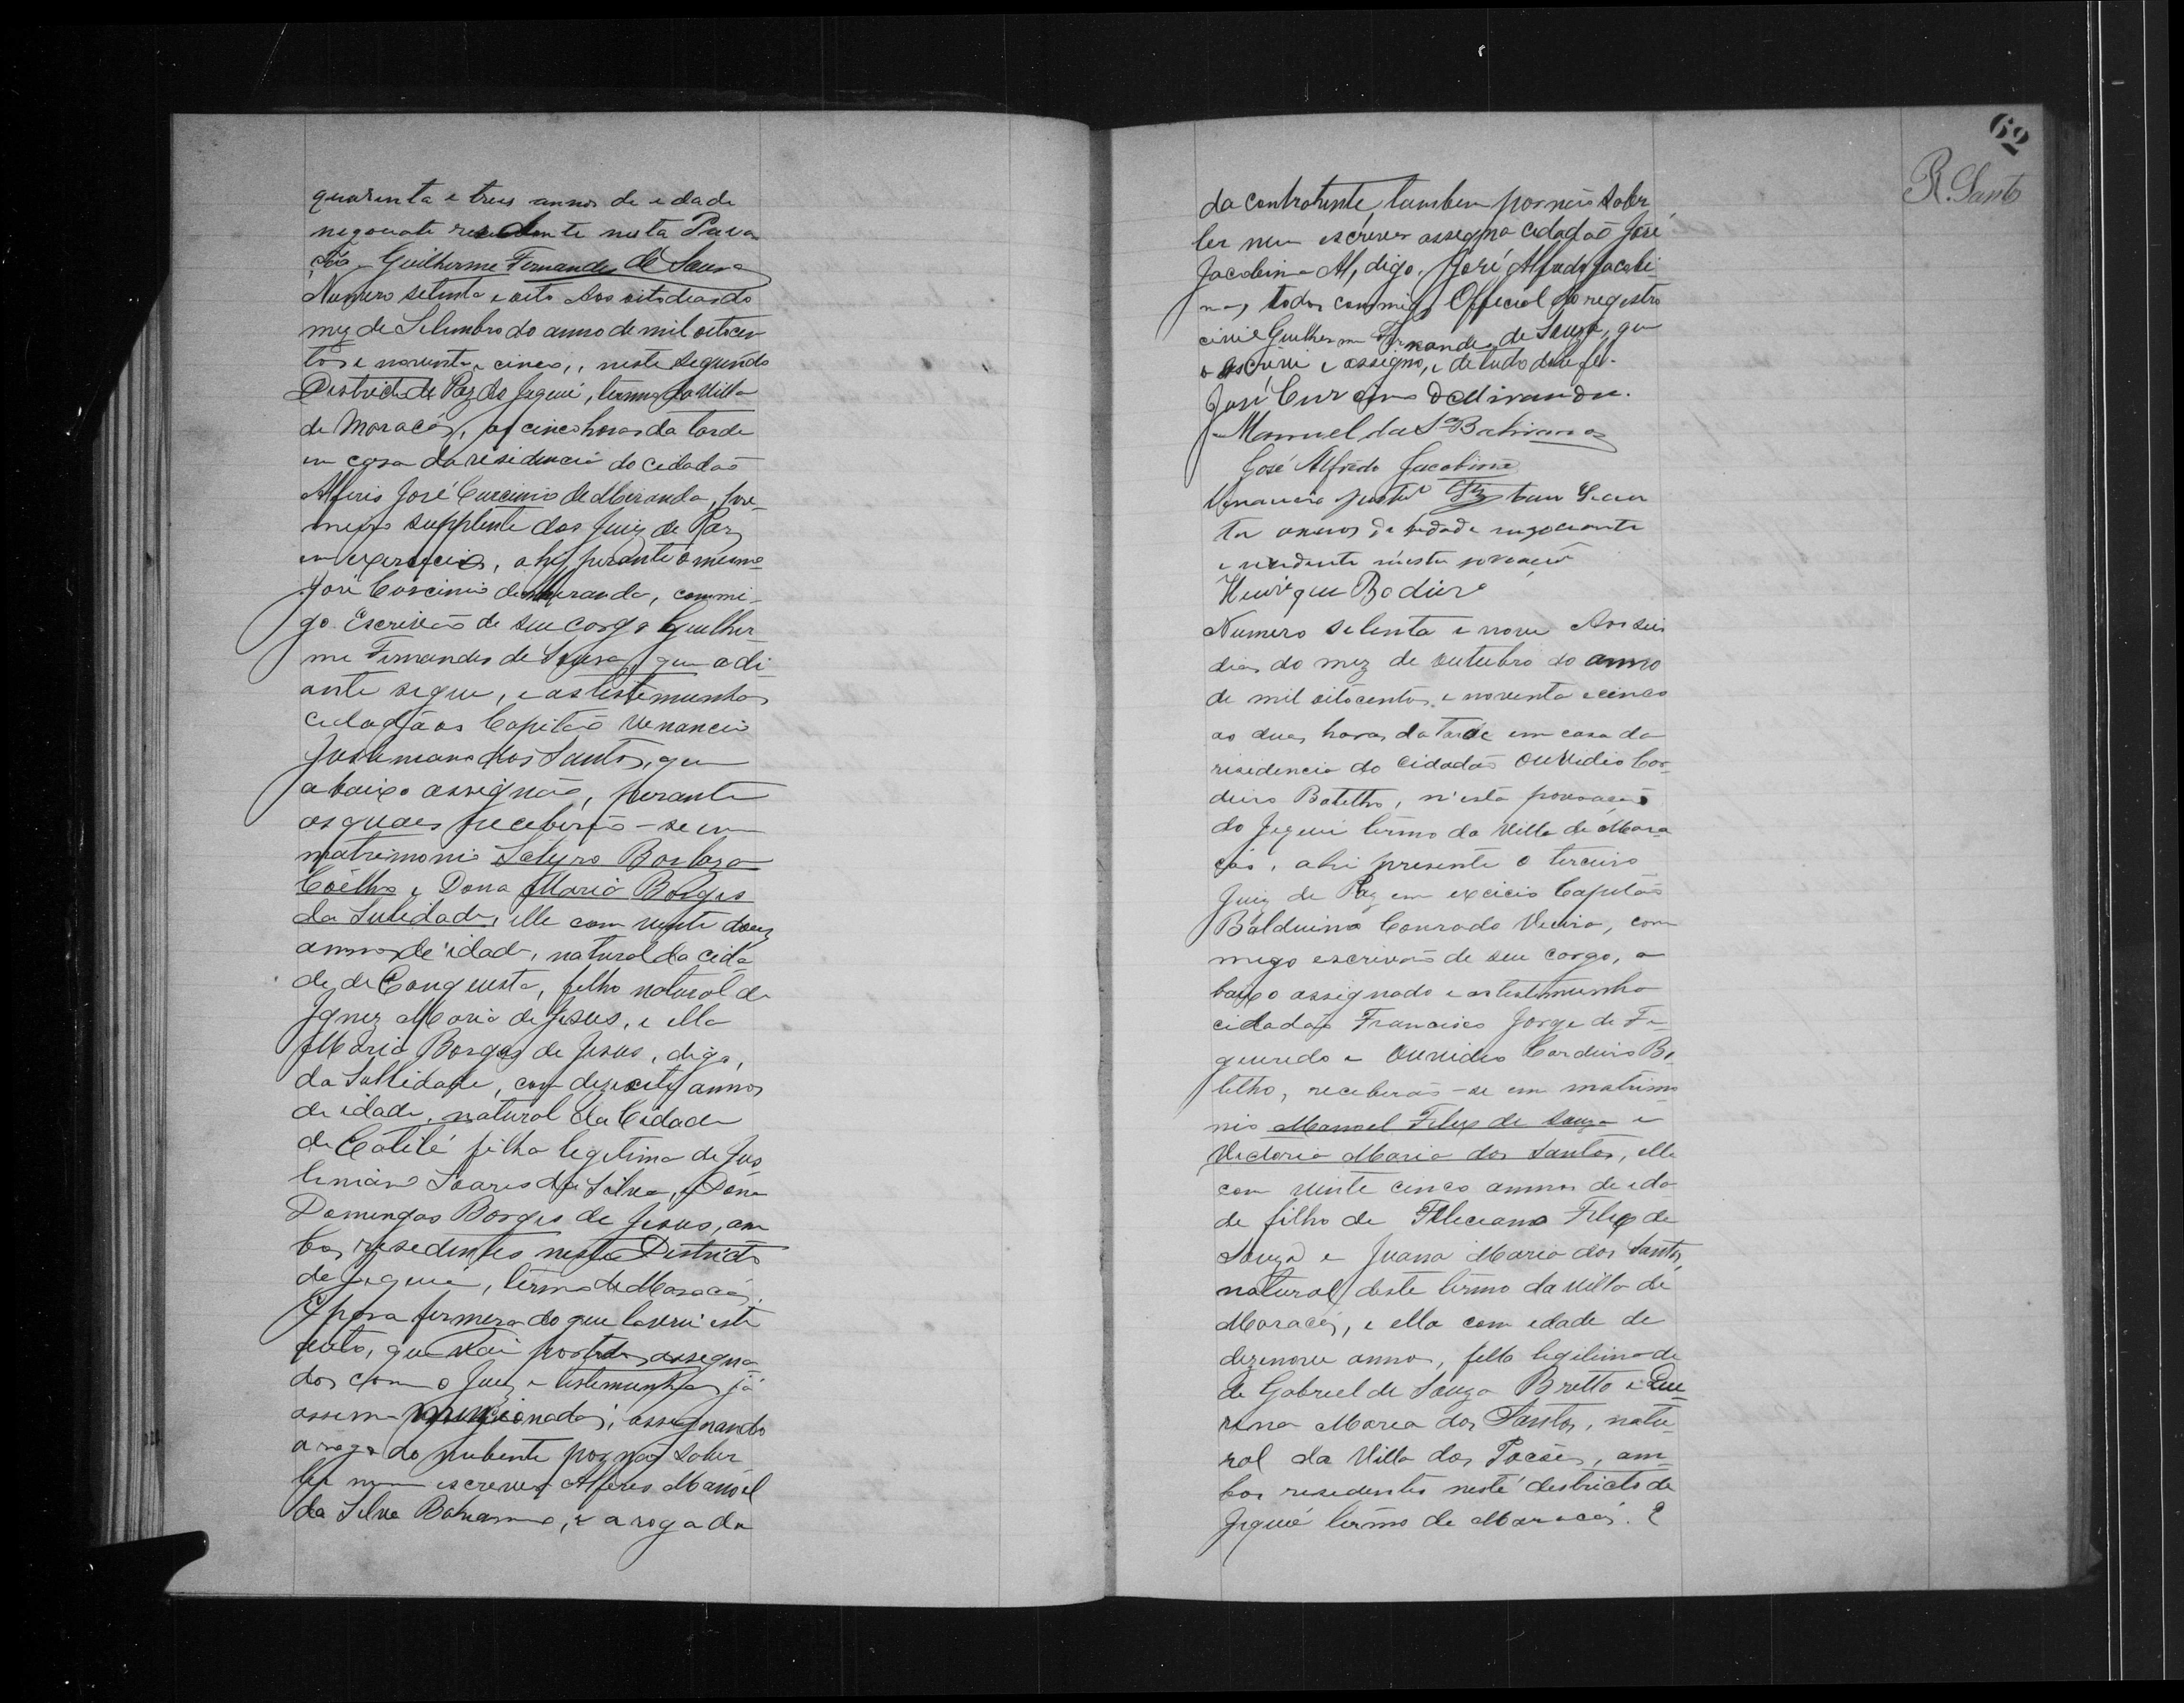 quarenta e tres annos de edade
negociate residente nesta Pova
ção Guilherme Fernandes de Sousa
Numero setenta e oito Aos oito dias do
mez de Setembro do anno de mil oitocen
tos e noventa e cinco,, neste segundo
Districto de Paz do Jequié, termo da Villa
de Maracás, as cinco horas da tarde
em casa da residencia do cidadaõ
Alferis José Curcinio de Meranda, pri-
meiro supplente dos Juiz de Paz
em exercicio, ahy perante o mesmo
José Curcinio de Meranda, commi-
go Escrivaõ de seu cargo Guilher-
me Fernandes de Sousa, que adi
ante segue, e as testemunhas
cidadãos Capitaõ Venancio
dos Santos, que
abaixo assignaõ, perante
os quaes receberaõ-se em
matrimonio Satyro Barbosa
Coêlho e Dona Maria Borges
da Sulidade, elle com vinte dous
annos de idade, natural da cida
de de Conquista, filho natural de
Ignez Maria de Jesus, e ella
Maria Borges de Jesus, digo,
da Sullidade, com dezoito annos
de idade, natural da Cidade
de Catité filha legitima de Jus
tiniano Soares da Silva, e Dona
Domingas Borges de Jesus, am
bos residentes neste Districto
de Jequié, termo de Maracás.
E para fermeza do que lavrei este
auto, que vai por todos assegna
dos com o Juiz e testemunhas já
assima mencionadas, assignando
a rogo do nubente por naõ saber
ler nem escrever Alferes Manoel
da Silva Bahianno, e a rogo da
62
R. Santo
da contratente, tambem por naõ saber
ler nem escrever assegna cidadaõ José
Jacobina Al, digo, José Alfredo Jacobi-
na, todos commigo Official do registro
civil Guilherme Fernandes de Souza, que
o escrevi e assigno, e de tudo dou fé.
José Curcino de Miranda.
Manuel da Sª Bahianno
José Alfredo Jacobina
Venancio
ta annos de hedade negociante
e residente nésta povoação
Henrique
Numero setenta e nove Aos seis
dias do mez de outubro do anno
de mil oitocentos e noventa e cinco
as duas horas da tarde em casa da
residencia do Cidadaõ Ouvidio Cor-
deiro Botelho, n'esta povoaçaõ
do Jequié termo da Villa de Mara
cás, ahi presente o terceiro
Juiz de Paz em excicio Capitaõ
Balduino Conrado Vieira, com
migo escrivaõ de seu cargo, a
baixo assignado e as testemunha
cidadaõ Francisco Jorge de Fi-
gueiredo e Ouvidio Cordeiro Bo
telho, receberaõ-se em matrimo
nio Manoel Felix de Souza e
Victoria Maria dos Santos, elle
com vinte cinco annos de eda
de filho de Feleciano Felix de
Souza e Juana Maria dos Santos,
natural deste termo da villa de
Maracás, e ella com edade de
dezenove annos, filla legitima de
de Gabriel de Souza Britto e Que
rina Maria dos Santos, natu-
ral da Villa dos Poções, am-
bos residentes neste destricto de
Jequié termo de Maracás. E